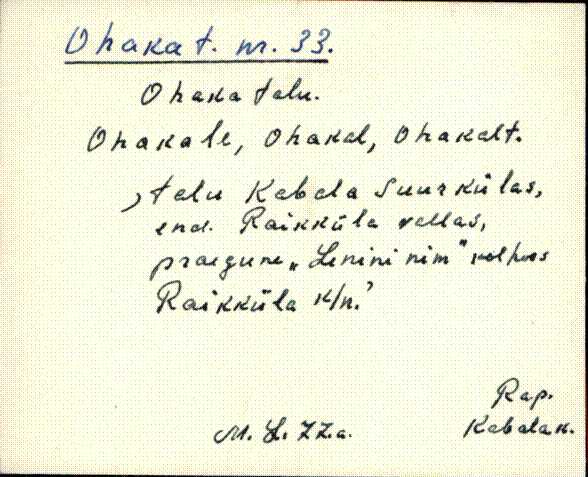 Ohaka t. nr. 33.
Ohaka talu.
Ohakale, Ohakal, Ohakalt.
, talu Kabala Suurkülas,
end. Raikküla vallas,
praegune „Lenini nim" kolhoos
Raikküla k/n.'
Rap.
M. L. 77. a.
Kabala k.